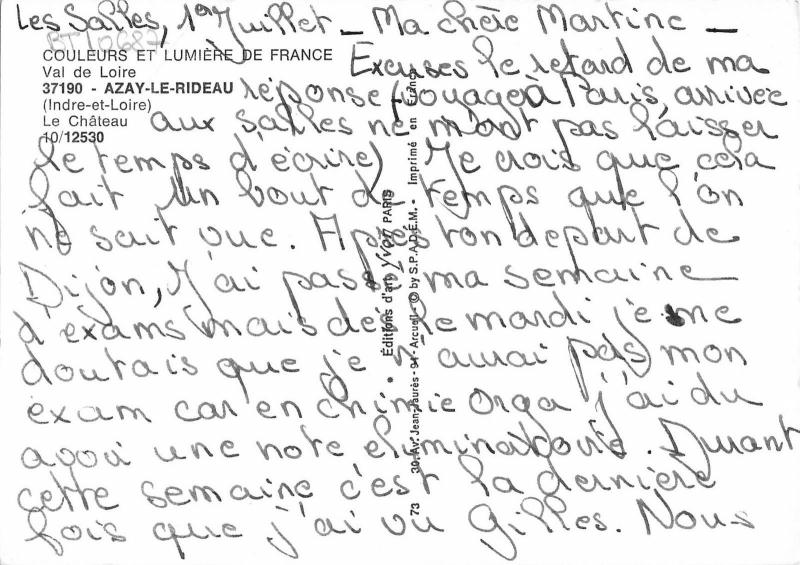 Les Salles, 1er Juillet - Ma chère Martine -
BT10682
COULEURS ET LUMIÈRE DE FRANCE
Val de Loire
37190 - AZAY-LE-RIDEAU
(Indre-et-Loire)
Le Château
10/12530
Excuses le retard de ma
réponse (voyage à Paris, arrivée
aux Salles ne m'ont pas laisser
le temps d'écrire) Je crois que cela
fait un bout de temps que l'on
ne sait vue. Après ton depart de
Dijon, j'ai passé ma semaine
d'exams mais dès le mardi je me
doutais que je n'aurai pas mon
exam car en chimie orga j'ai du
avoi une note eliminatoire. Durant
cette semaine c'est la dernière
fois que j'ai vu Gilles. Nous
Éditions d'art Yvon PARIS
30, Av. Jean-Jaurès - 94 - Arcueil - © by S.P.A.D.E.M. - Imprimé en France
73